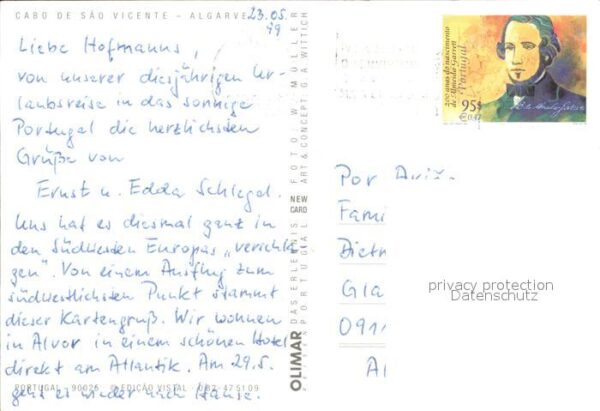 CABO DE SÃO VICENTE - ALGARVE
23.05.
99
Liebe Hofmanns,
von unserer diesjährigen Ur-
laubsreise in das sonnige
Portugal die herzlichsten
Grüße von
Ernst u. Edda Schlegel.
Uns hat es diesmal ganz in
den Südwesten Europas „verschla
gen“. Von einem Ausflug zum
südwestlichsten Punkt stammt
dieser Kartengruß. Wir wohnen
in Alvor in einem schönen Hotel
direkt am Atlantik. Am 29.5.
geht es wieder nach Hause.
PORTUGAL - 90026 - © EDIÇÃO VISTAL - 082-475109
OLIMAR
DAS ERLEBNIS
PORTUGAL
NEW
CARD
FOTO: W. MÜLLER
ART & CONCEPT: G.A. WITTICH
200 anos do nascimento
de Almeida Garrett
Portugal
95$
€0,47
Por
Fami
Dietm
Gla
091
Al
privacy protection
Datenschutz